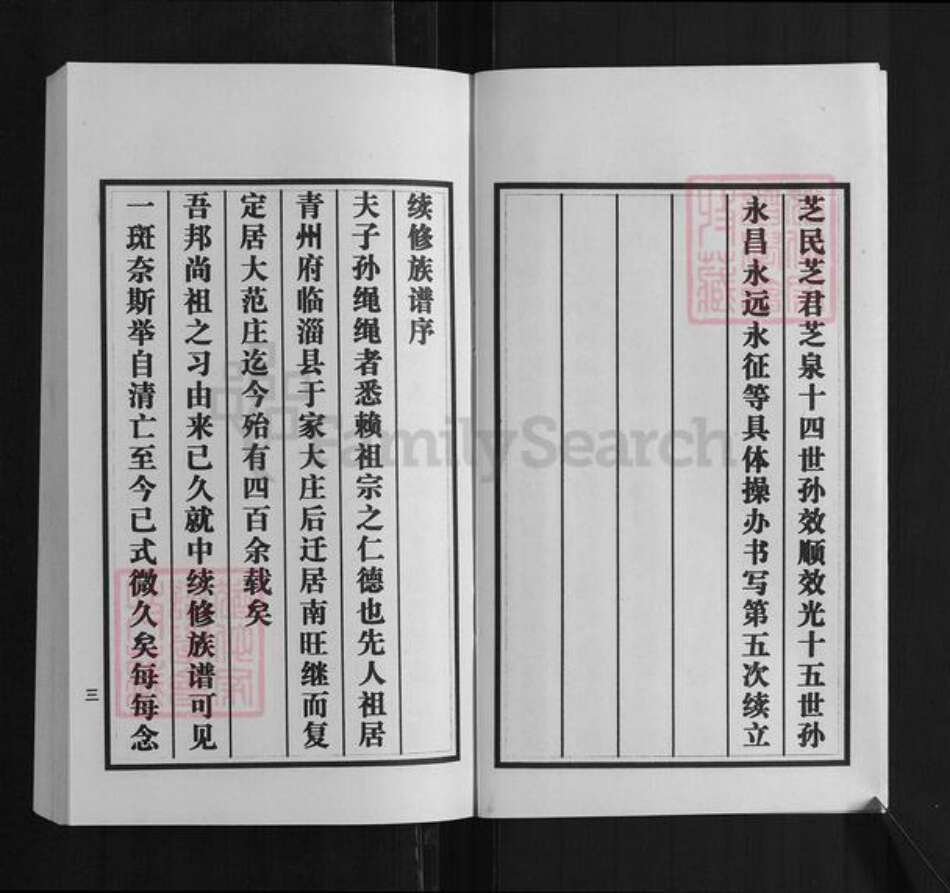 芝民芝君芝泉十四世孙效顺效光十五世孙
永昌永远永征等具体操办书写第五次续立
续修族谱序
夫子孙绳绳者悉赖祖宗之仁德也先人祖居
青州府临淄县于家大庄后迁居南旺继而复
定居大范庄迄今殆有四百余载矣
吾邦尚祖之习由来已久就中续修族谱可见
一斑奈斯举自清亡至今已式微久矣每每念
三
FamilySearch